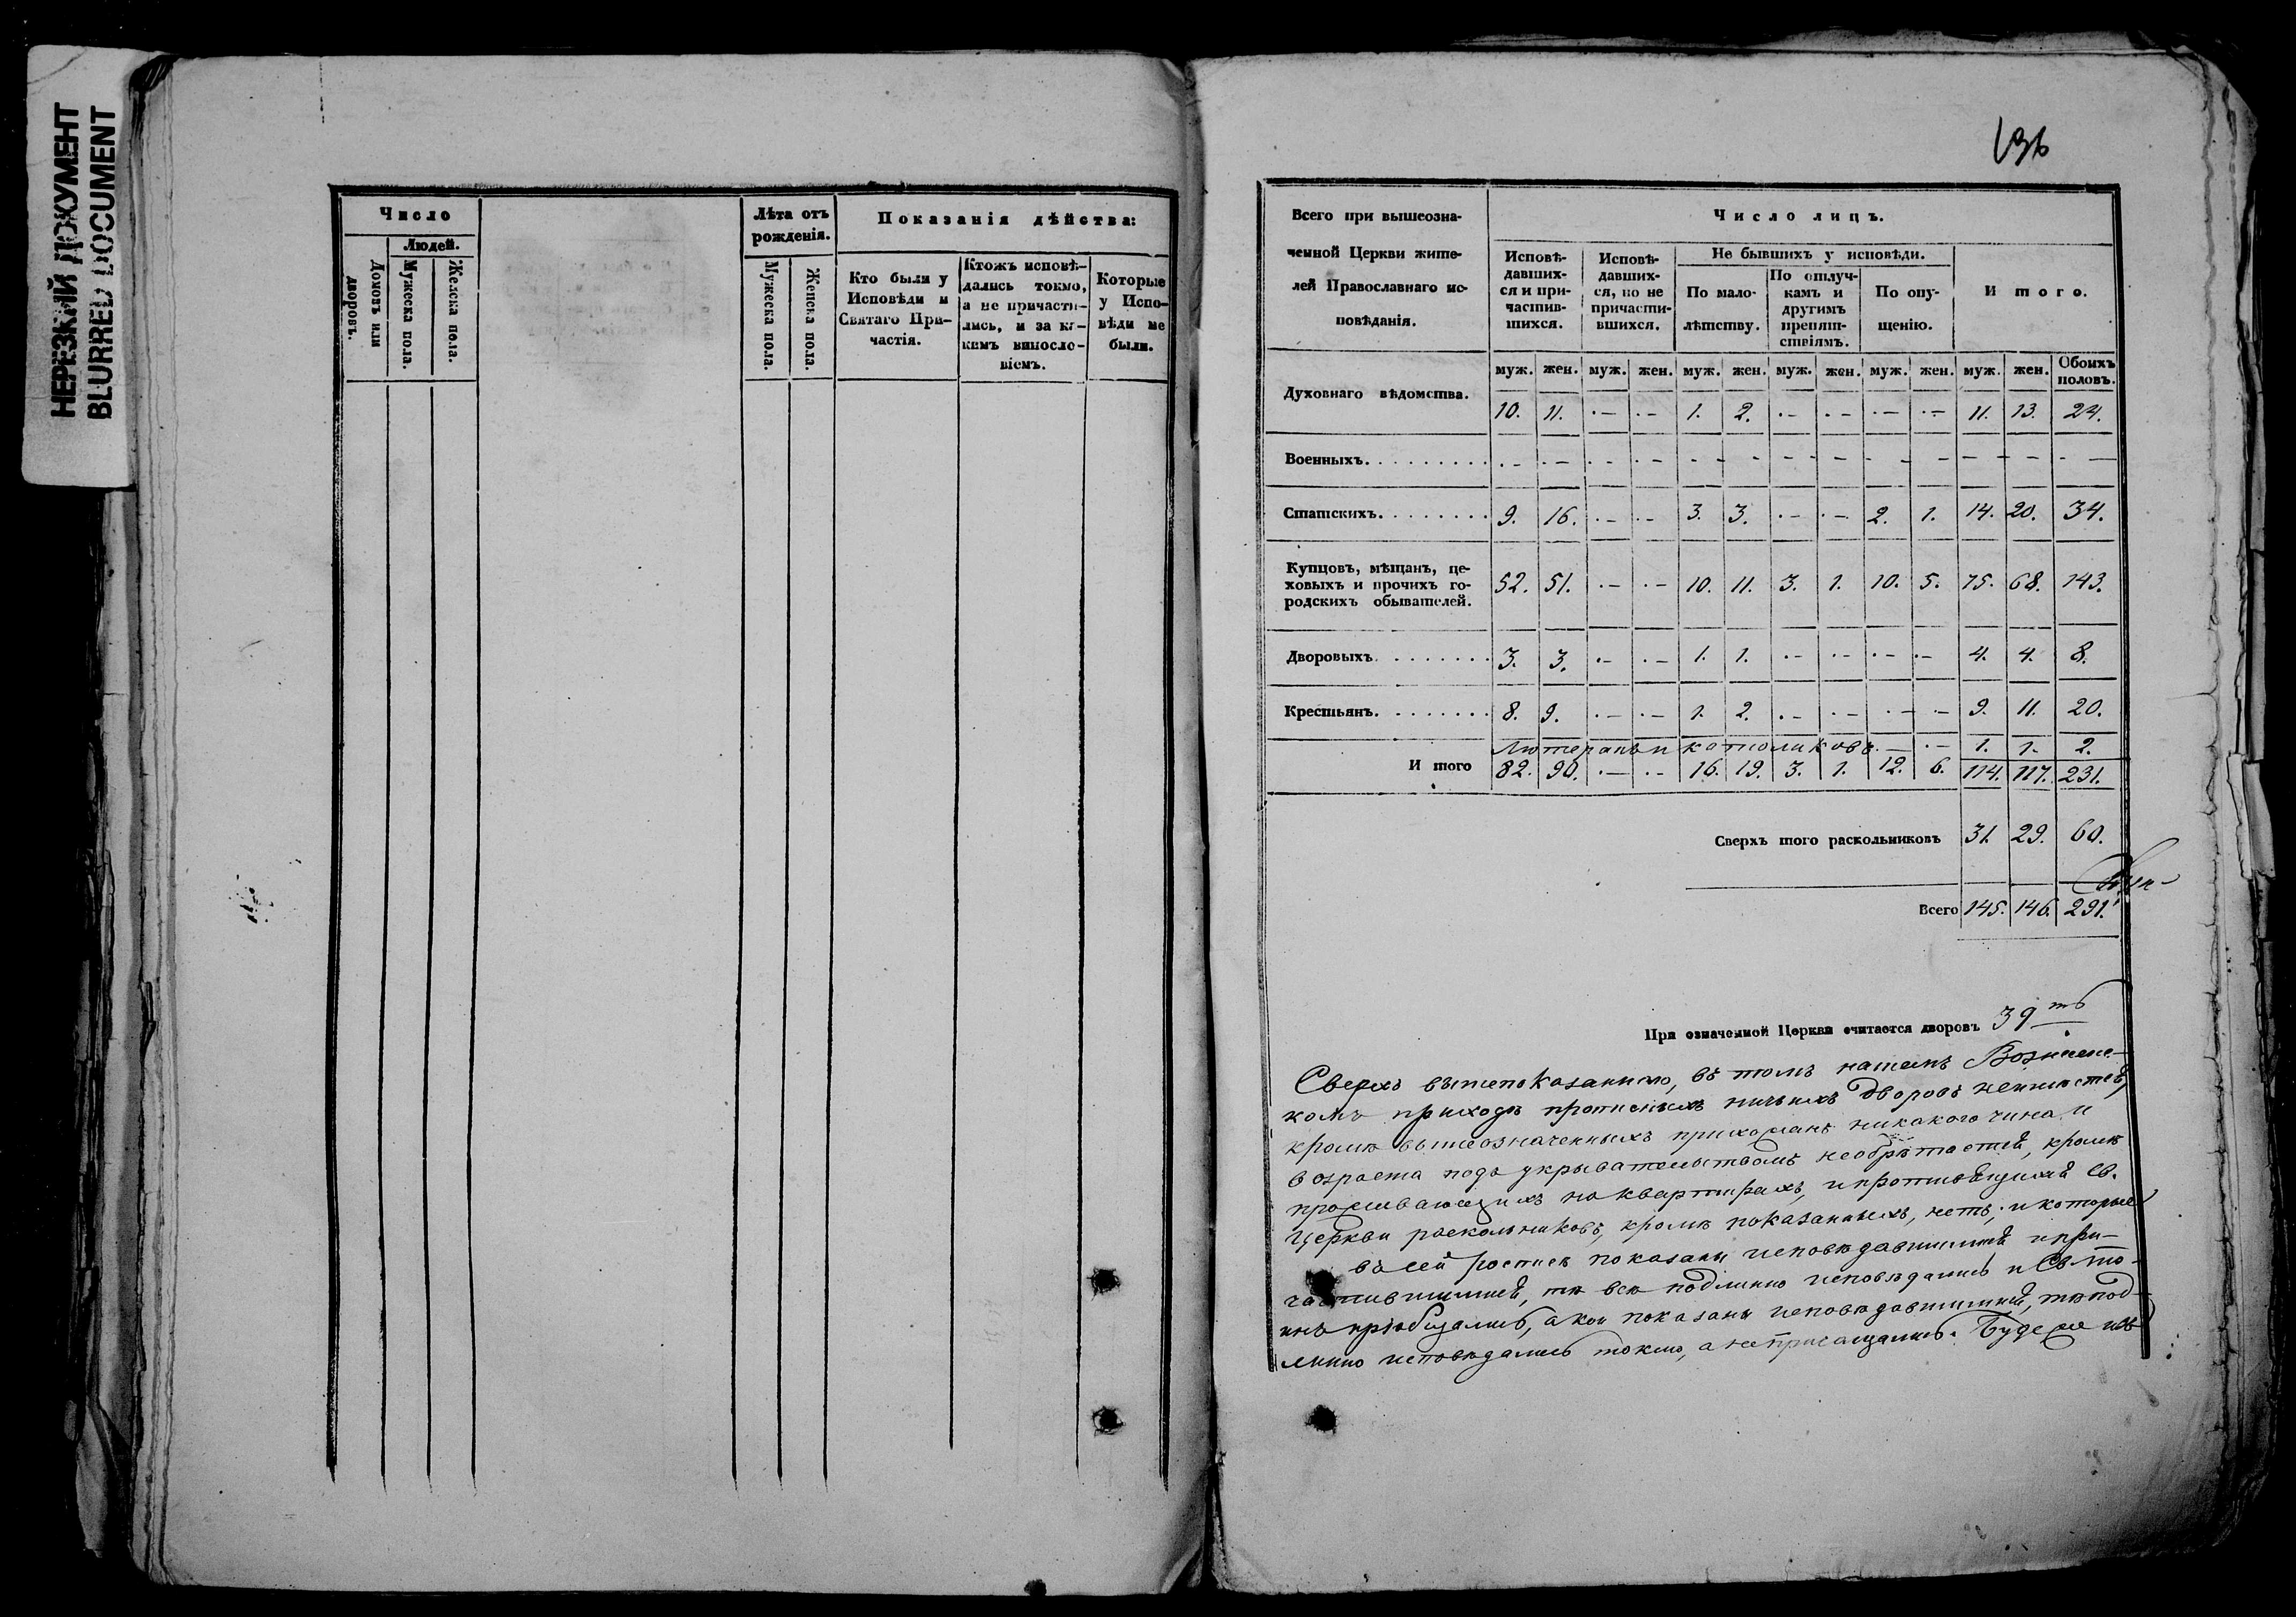 НЕРЕЗКИЙ ДОКУМЕНТ
BLURRED DOCUMENT
Число
Людей.
Домовъ или дворовъ.
Мужеска пола.
Женска пола.
Лѣта отъ рожденія.
Мужеска пола.
Женска пола.
Показанія дѣйства:
Кто были у
Исповѣди и
Святаго При-
частія.
Ктожъ исповѣ-
дались токмо,
а не причасти-
лись, и за ка-
кимъ винословіемъ.
Которые
у Испо-
вѣди не
были.
136
Всего при вышеозна-
ченной Церкви жите-
лей Православнаго ис-
повѣданія.
Число лицъ.
Исповѣ-
давших-
ся и при-
частив-
шихся.
Исповѣ-
давших-
ся, но не
причасти-
вшихся.
Не бывшихъ у исповѣди.
По мало-
лѣтству.
По отлуч-
камъ и
другимъ
препят-
ствіямъ.
По опу-
щенію.
И того.
муж. жен. муж. жен. муж. жен. муж. жен. муж. жен. муж. жен. Обоихъ половъ.
Духовнаго вѣдомства. 10. 11. .— .— 1. 2. .— .— .— .— 11. 13. 24.
Военныхъ. . . . . . . . . .— .— .— .— — — — — — — — — —
Статскихъ. . . . . . . . 9. 16. .— .— 3. 3. .— .— 2. 1. 14. 20. 34.
Купцовъ, мѣщанъ, це-
ховыхъ и прочихъ го-
родскихъ обывателей. 52. 51. .— .— 10. 11. 3. 1. 10. 5. 75. 68. 143.
Дворовыхъ. . . . . . . . 3. 3. .— .— 1. 1. .— .— .— .— 4. 4. 8.
Крестьянъ. . . . . . . . 8. 9. .— .— 1. 2. .— .— .— .— 9. 11. 20.
Лютеранъ и католиковъ .— .— 1. 1. 2.
И того 82. 90. .— .— 16. 19. 3. 1. 12. 6. 114. 117. 231.
Сверхъ того раскольниковъ 31. 29. 60.
Всего 145. 146. 291.
При означенной Церкви считается дворовъ 39ть
Сверхъ вышепоказанного, въ томъ нашемъ Вознесенс-
комъ приходѣ прописныхъ ничьихъ дворовъ неимѣется,
кромѣ вышеозначенныхъ прихожанъ никакого чина и
возраста подъ укрывательствомъ необрѣтается, кромѣ
проживающихъ на квартирахъ, и противящихся св.
церкви раскольниковъ, кромѣ показанныхъ, нетъ; и которые
въ сей росписѣ показаны исповѣдавшимися и при-
частившимися, тѣ всѣ подлинно исповѣдались и Св. Та-
инъ пріобщались, а кои показаны исповѣдавшимися, тѣ под-
линно исповѣдались токмо, а непричащались. Буде же изъ